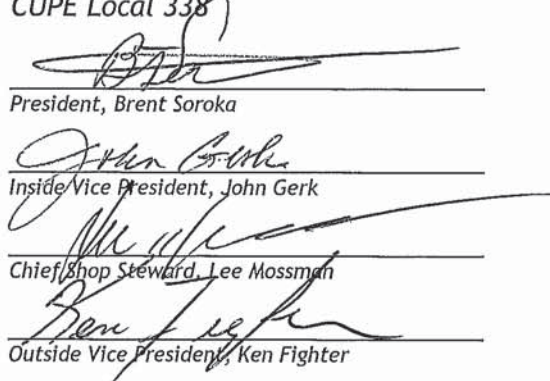 CUPE Local 338
President, Brent Soroka
John Gerk
Inside Vice President, John Gerk
Chief Shop Steward, Lee Mossman
Ken Fighter
Outside Vice President, Ken Fighter